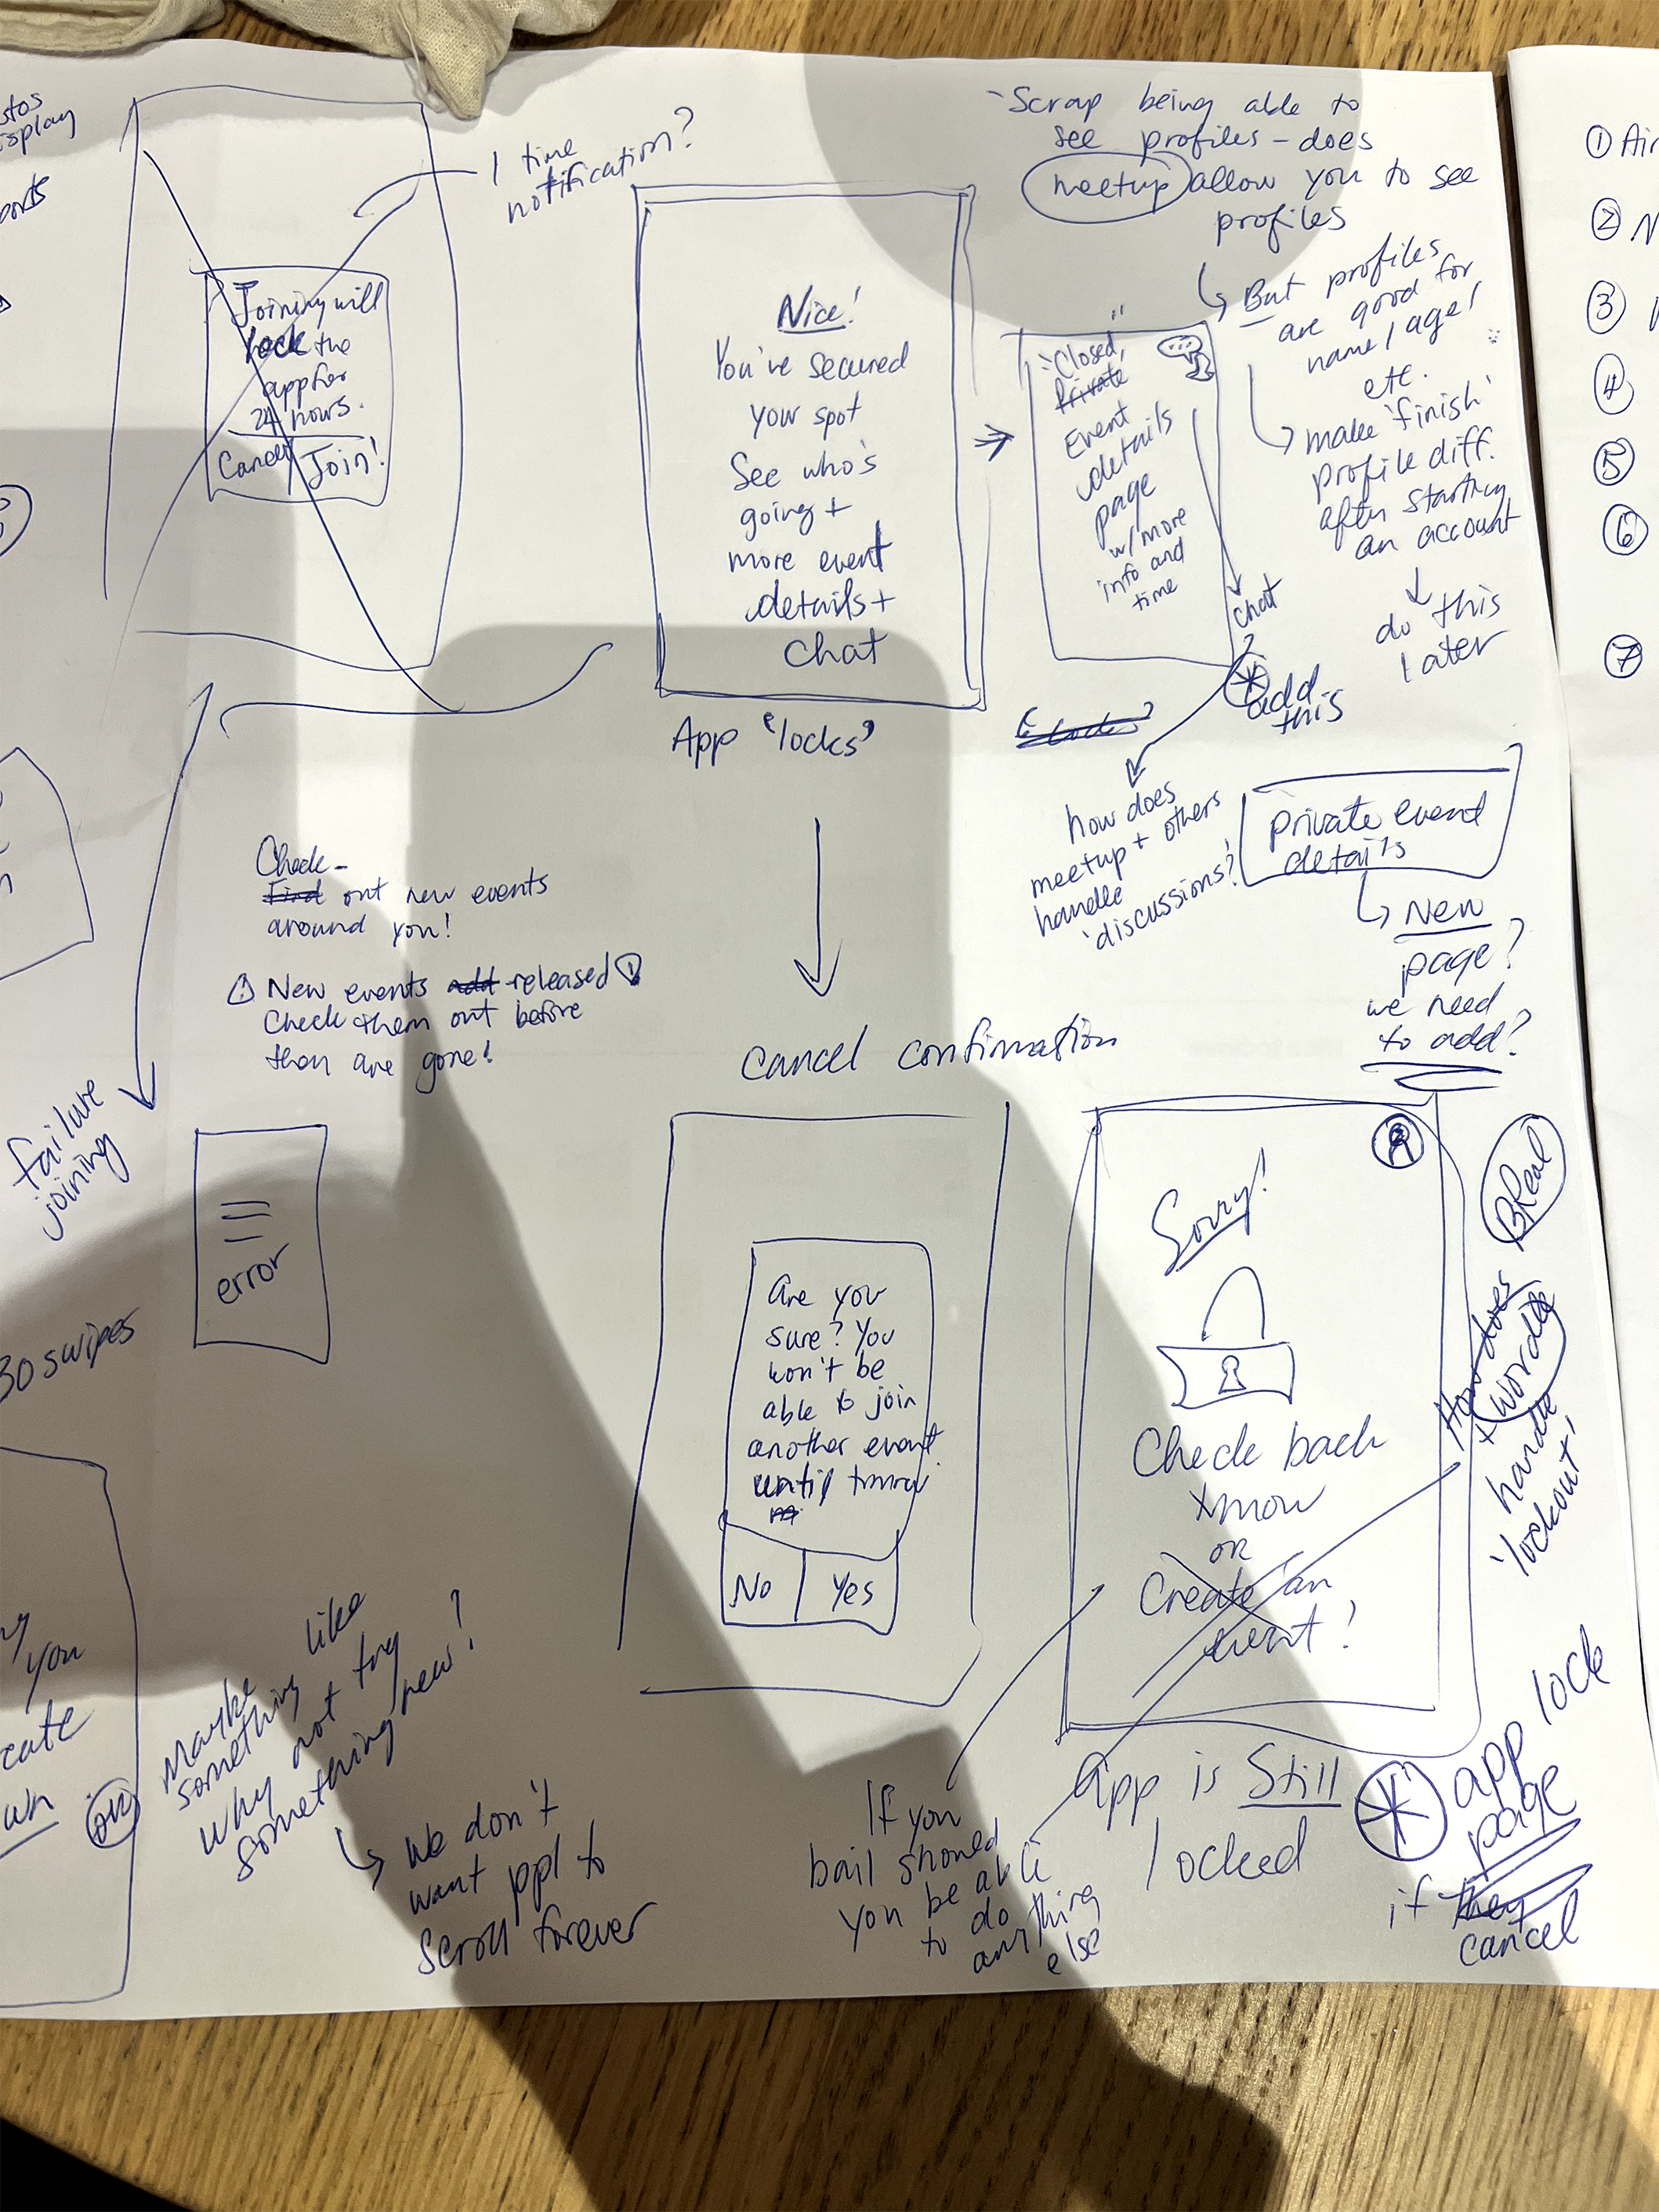 stos
isplay
orts
1 time
notification?
Joining will
lock the
app for
24 hours.
Cancel
Join!
Nice!
You've secured
your spot
See who's
going +
more event
details +
chat
App 'locks'
- Scrap being able to
see profiles - does
meetup allow you to see
profiles
But profiles
are good for
name / age /
etc.
make 'finish'
profile diff.
after starting
an account
do this
later
"Closed,"
Private
Event
details
page
w/ more
info and
time
chat
add
this
how does
meetup + others
handle
'discussions?'
private event
details
New
page?
we need
to add?
Check -
Find out new events
around you!
New events add released
Check them out before
then are gone!
failure
joining
error
30 swipes
cancel confirmation
are you
sure? You
won't be
able to join
another event
until tmrw
No
Yes
Sorry!
Check back
tmow
or
Create an
event!
BReal
How does
+ wordle
handle
'lockout'
you
cate
wn
or
Maybe
something like
why not try
something new?
We don't
want ppl to
scroll forever
If you
bail should
you be able
to do
anything
else
app is Still
locked
app lock
page
if they
cancel
① Air
② N
③
④
⑤
⑥
⑦